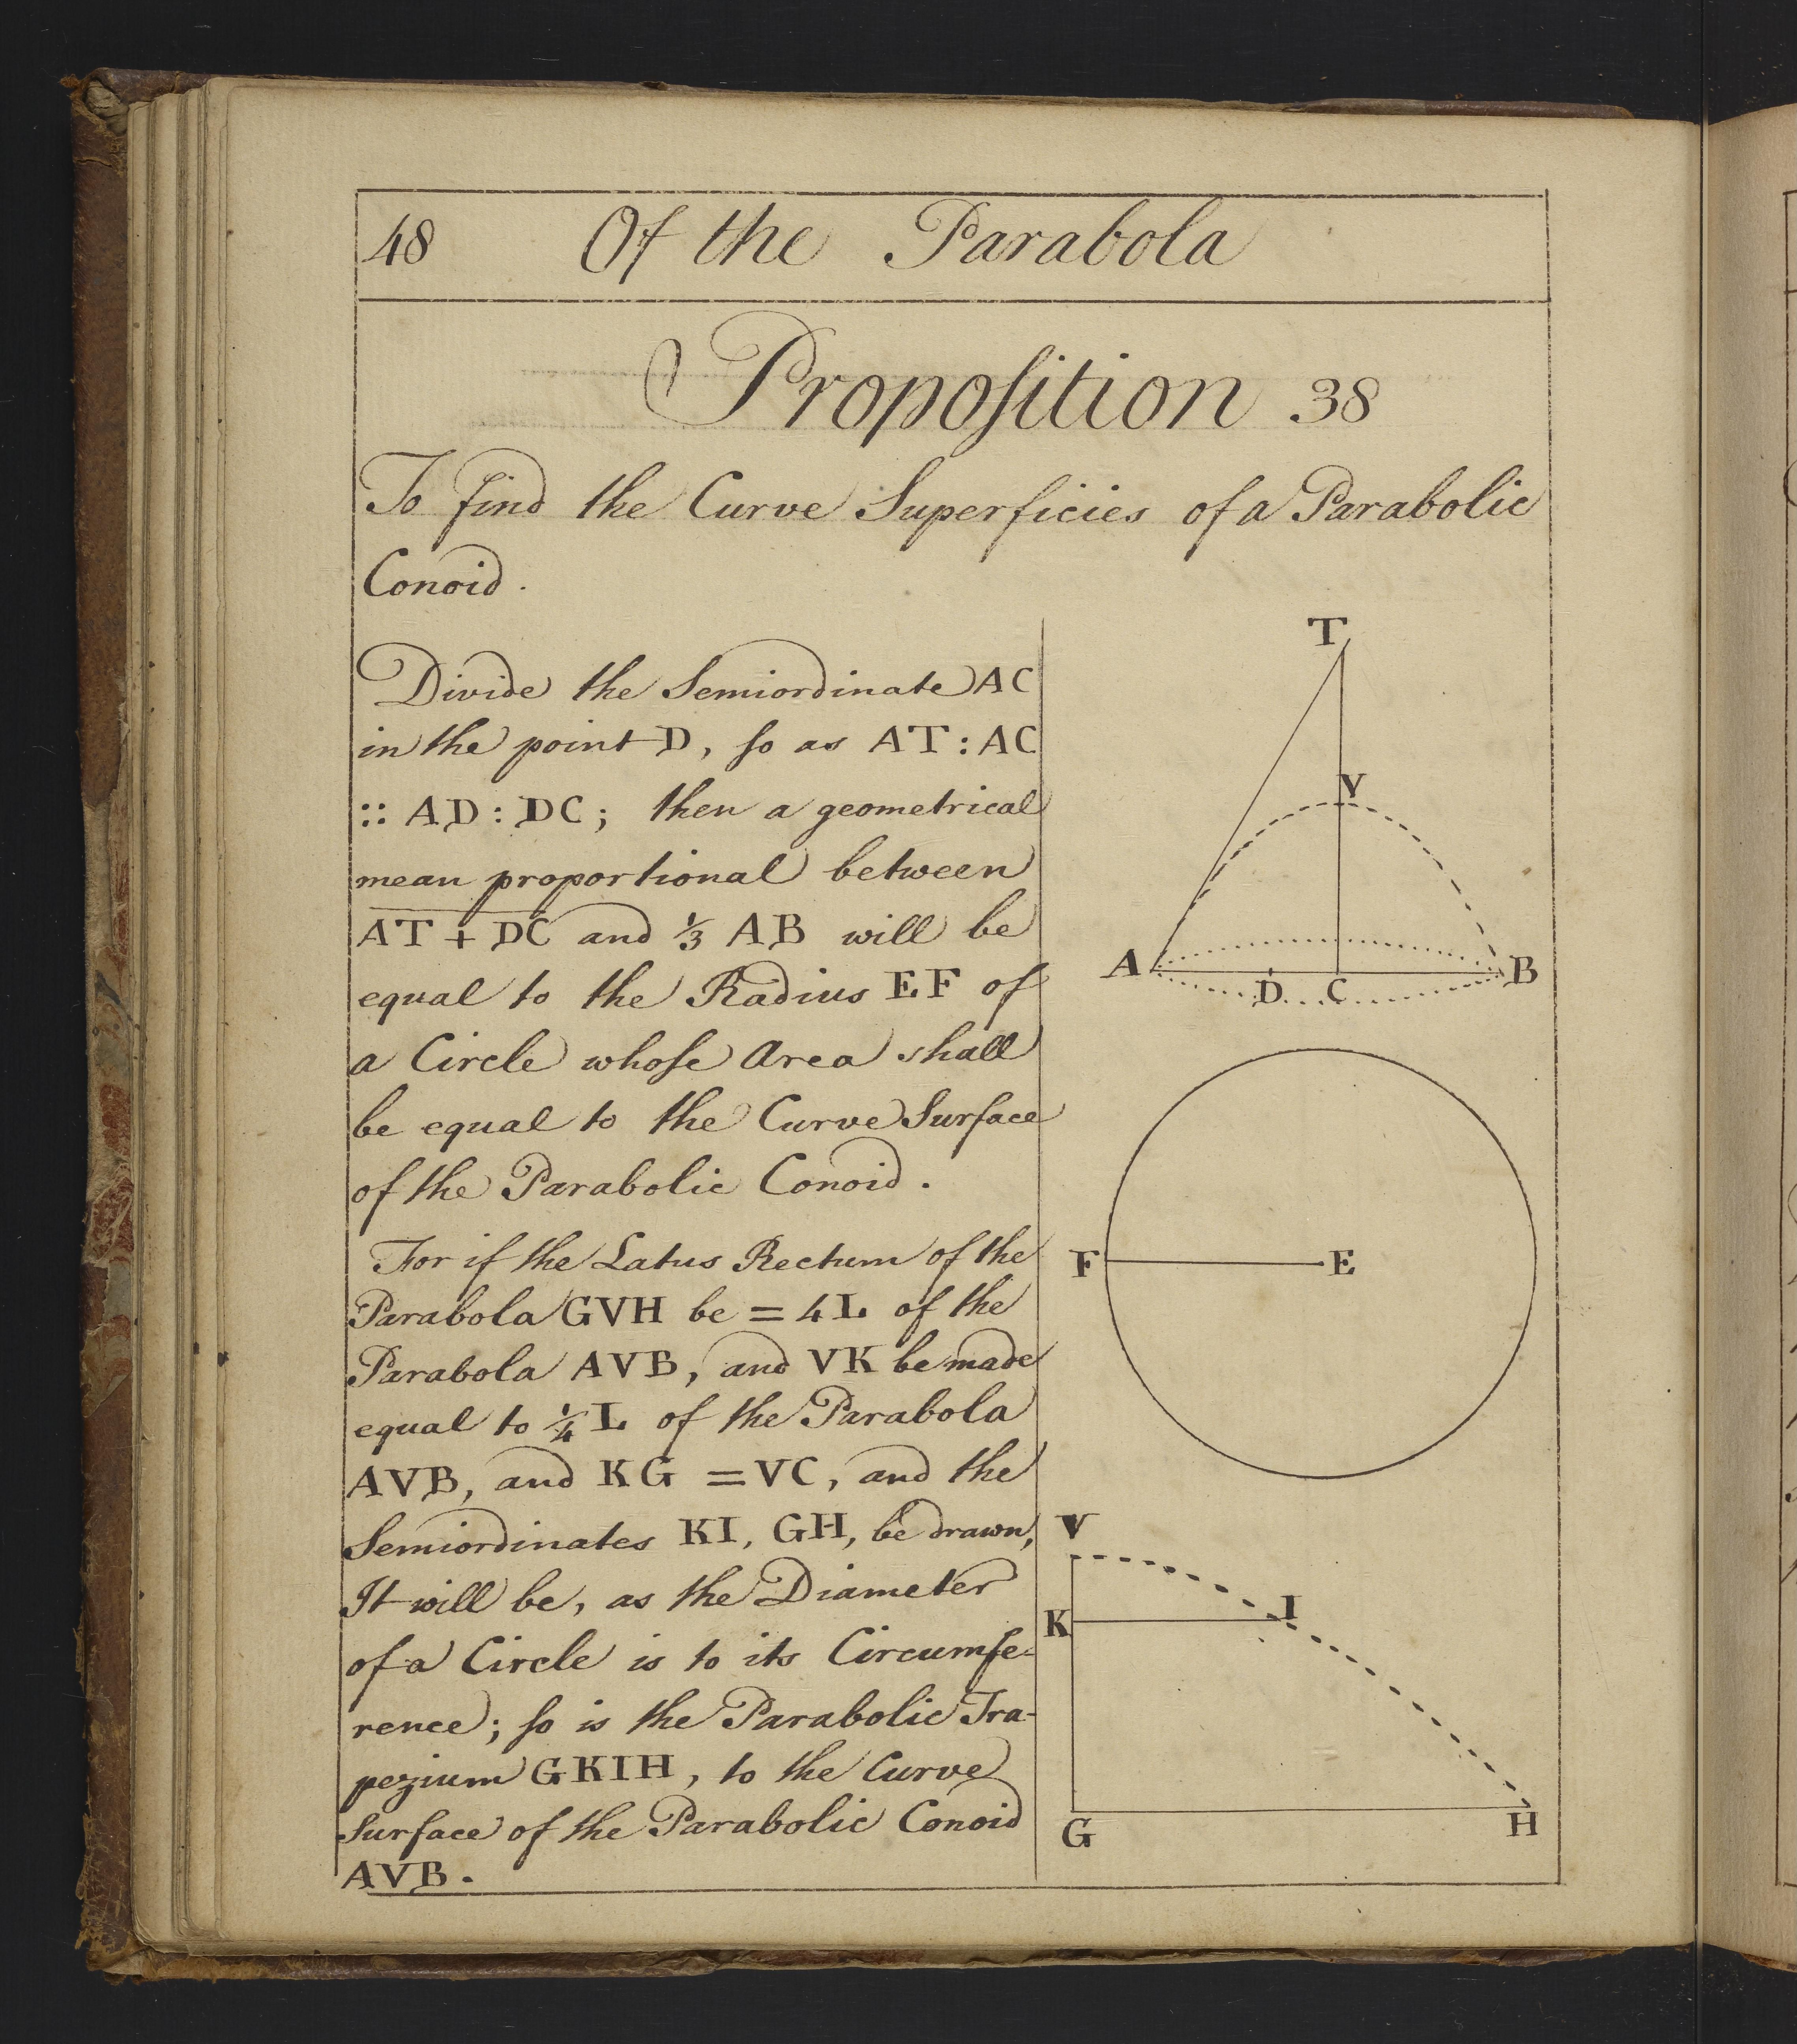 48 Of the Parabola
Propoſition 38
To find the Curve Superficies of a Parabolic
Conoid.
Divide the Semiordinate AC
in the point D, ſo as AT : AC
:: AD : DC; then a geometrical
mean proportional between
AT + DC and ⅓ AB will be
equal to the Radius EF of
a Circle whoſe Area shall
be equal to the Curve Surface
of the Parabolic Conoid.
For if the Latus Rectum of the
Parabola GVH be = 4L of the
Parabola AVB, and VK be made
equal to ¼ L of the Parabola
AVB, and KG = VC, and the
Semiordinates KI, GH, be drawn,
It will be, as the Diameter
of a Circle is to its Circumfe-
rence; ſo is the Parabolic Tra-
pezium GKIH, to the Curve
Surface of the Parabolic Conoid
AVB.
T
V
A D C B
F E
V
K I
G H